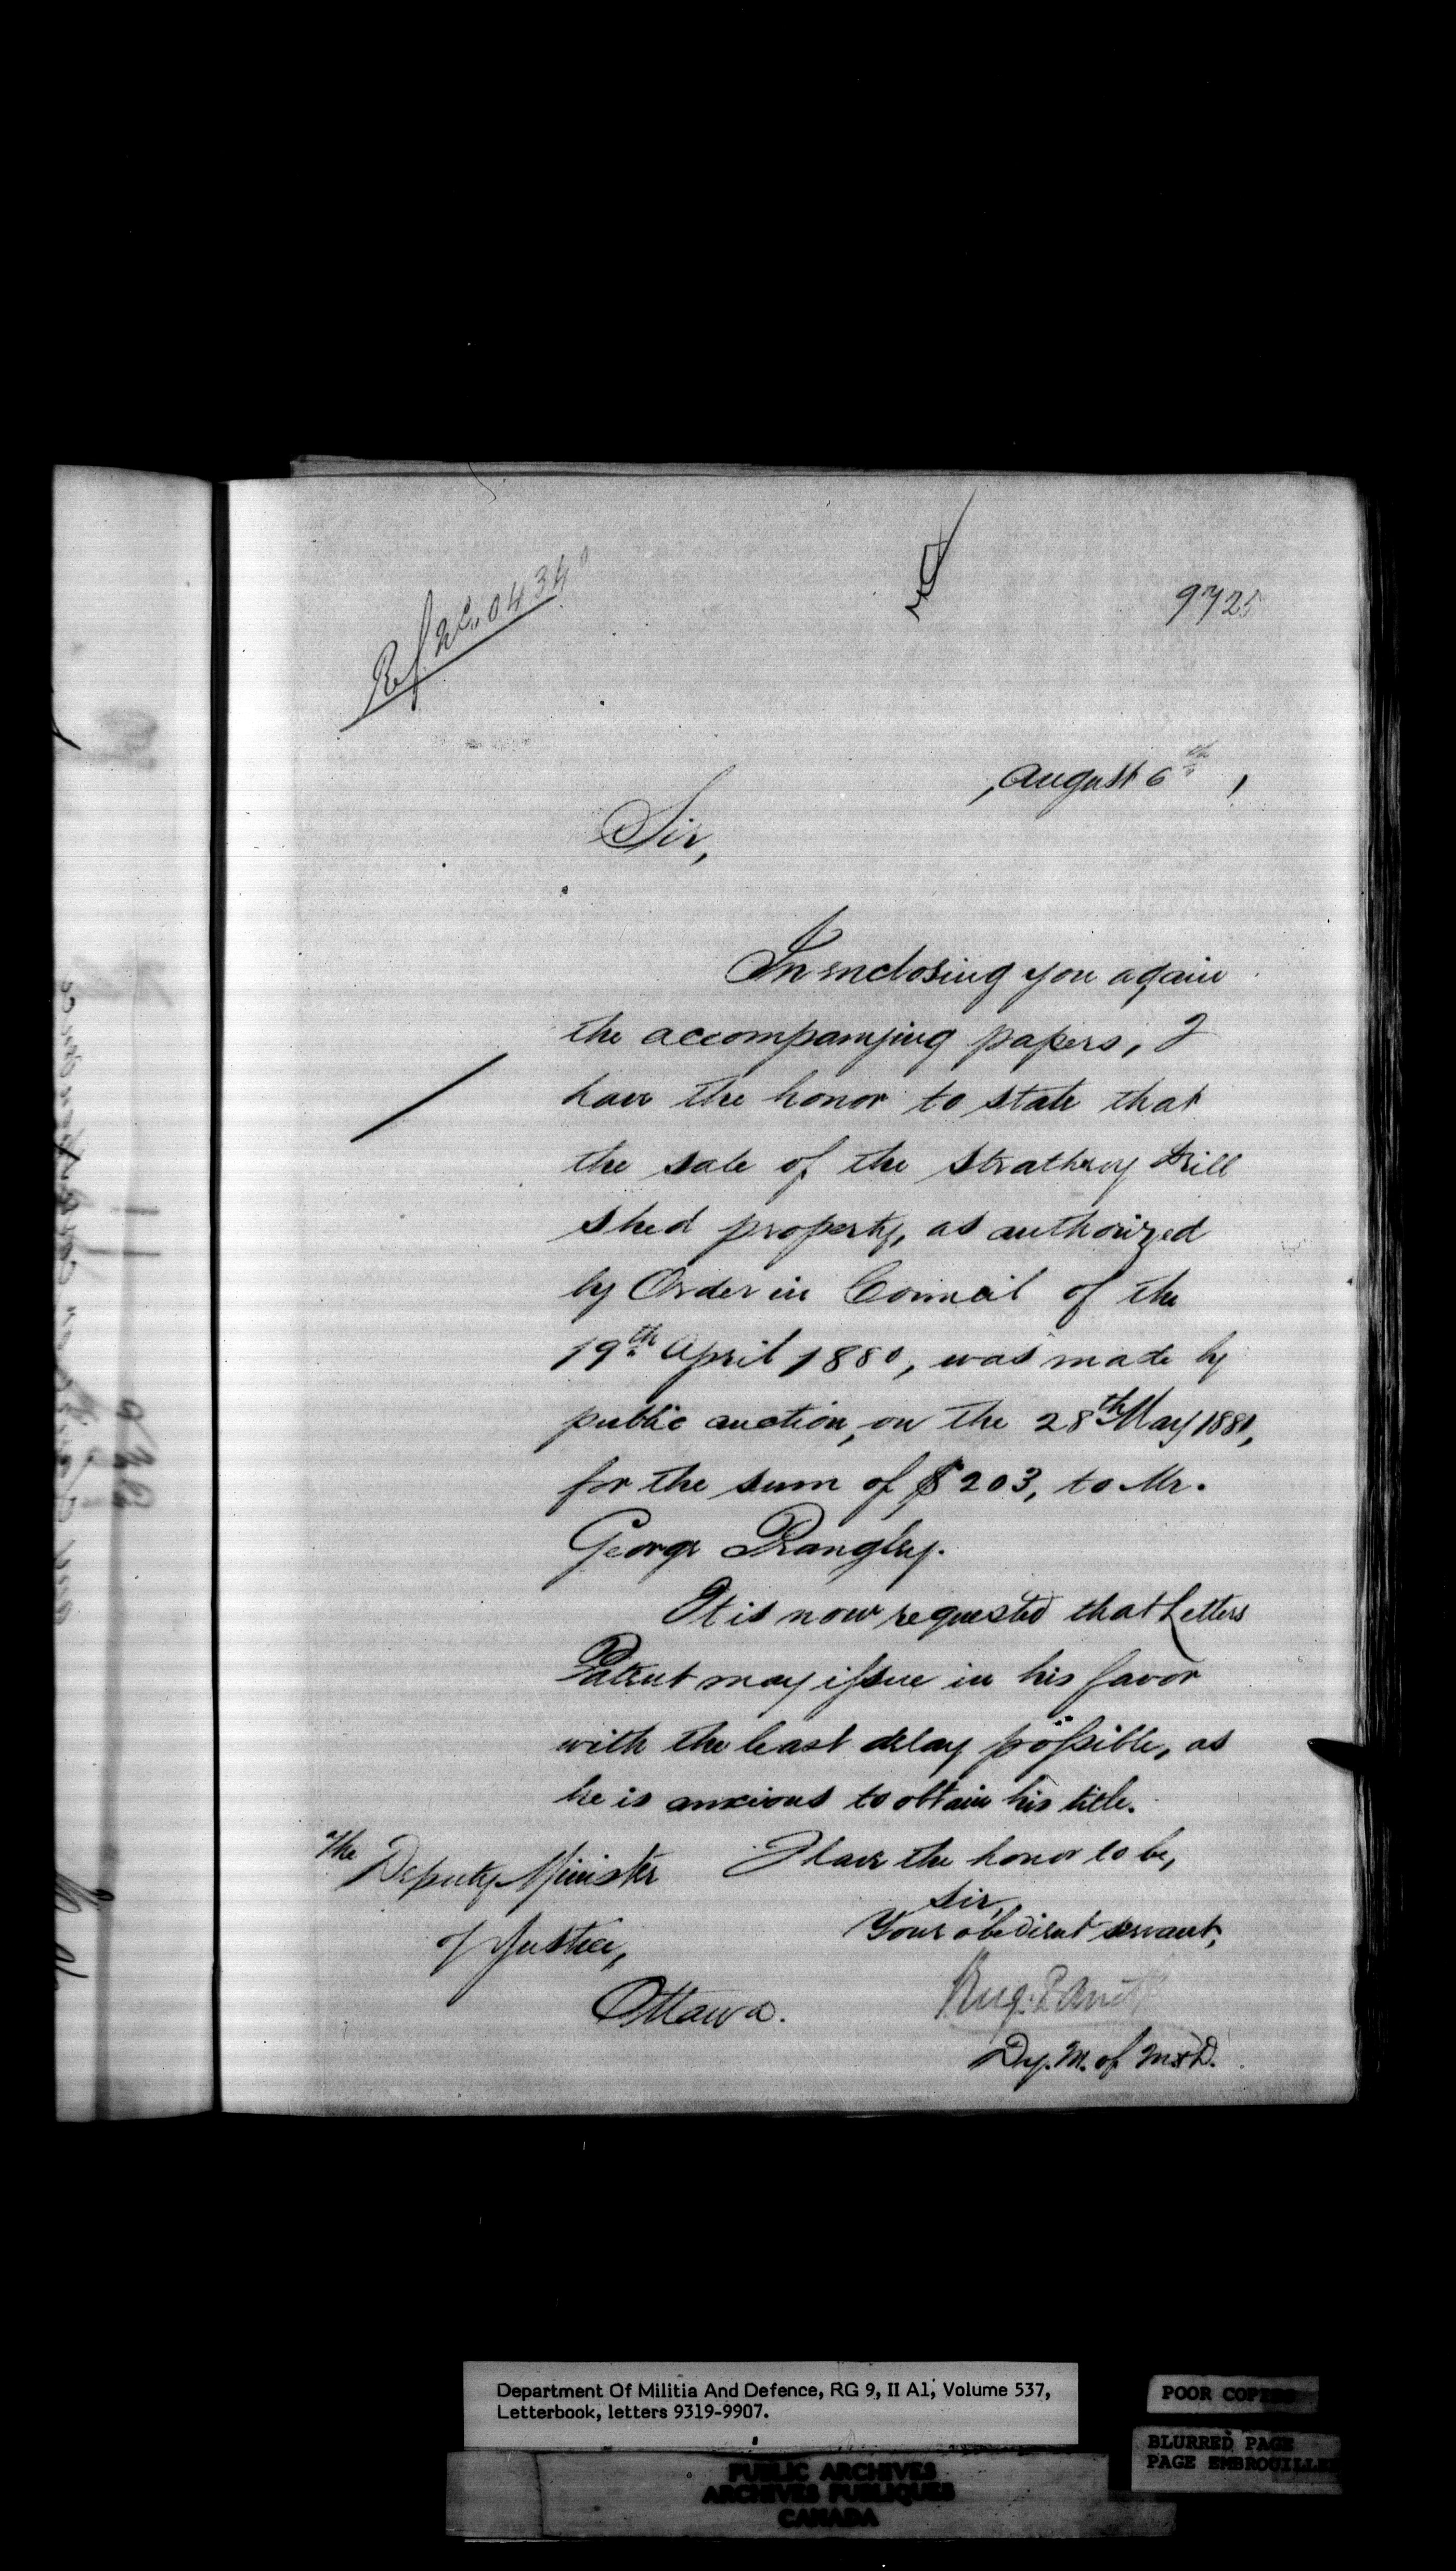 Ref. No. 04340
9725
, August 6th ,
Sir,
In enclosing you again
the accompanying papers, I
have the honor to state that
the sale of the Strathroy Drill
Shed property, as authorized
by Order in Council of the
19th April 1880, was made by
public auction, on the 28th May 1881,
for the sum of $203, to Mr.
George Prangley.
It is now requested that Letters
Patent may issue in his favor
with the least delay possible, as
he is anxious to obtain his title.
I have the honor to be,
Sir,
Your obedient servant,
Eug. Panet
Dy. M. of M & D.
The
Deputy Minister
of Justice,
Ottawa.
Department Of Militia And Defence, RG 9, II A1, Volume 537,
Letterbook, letters 9319-9907.
POOR COPIES
BLURRED PAGE
PAGE EMBROUILLEE
PUBLIC ARCHIVES
ARCHIVES PUBLIQUES
CANADA